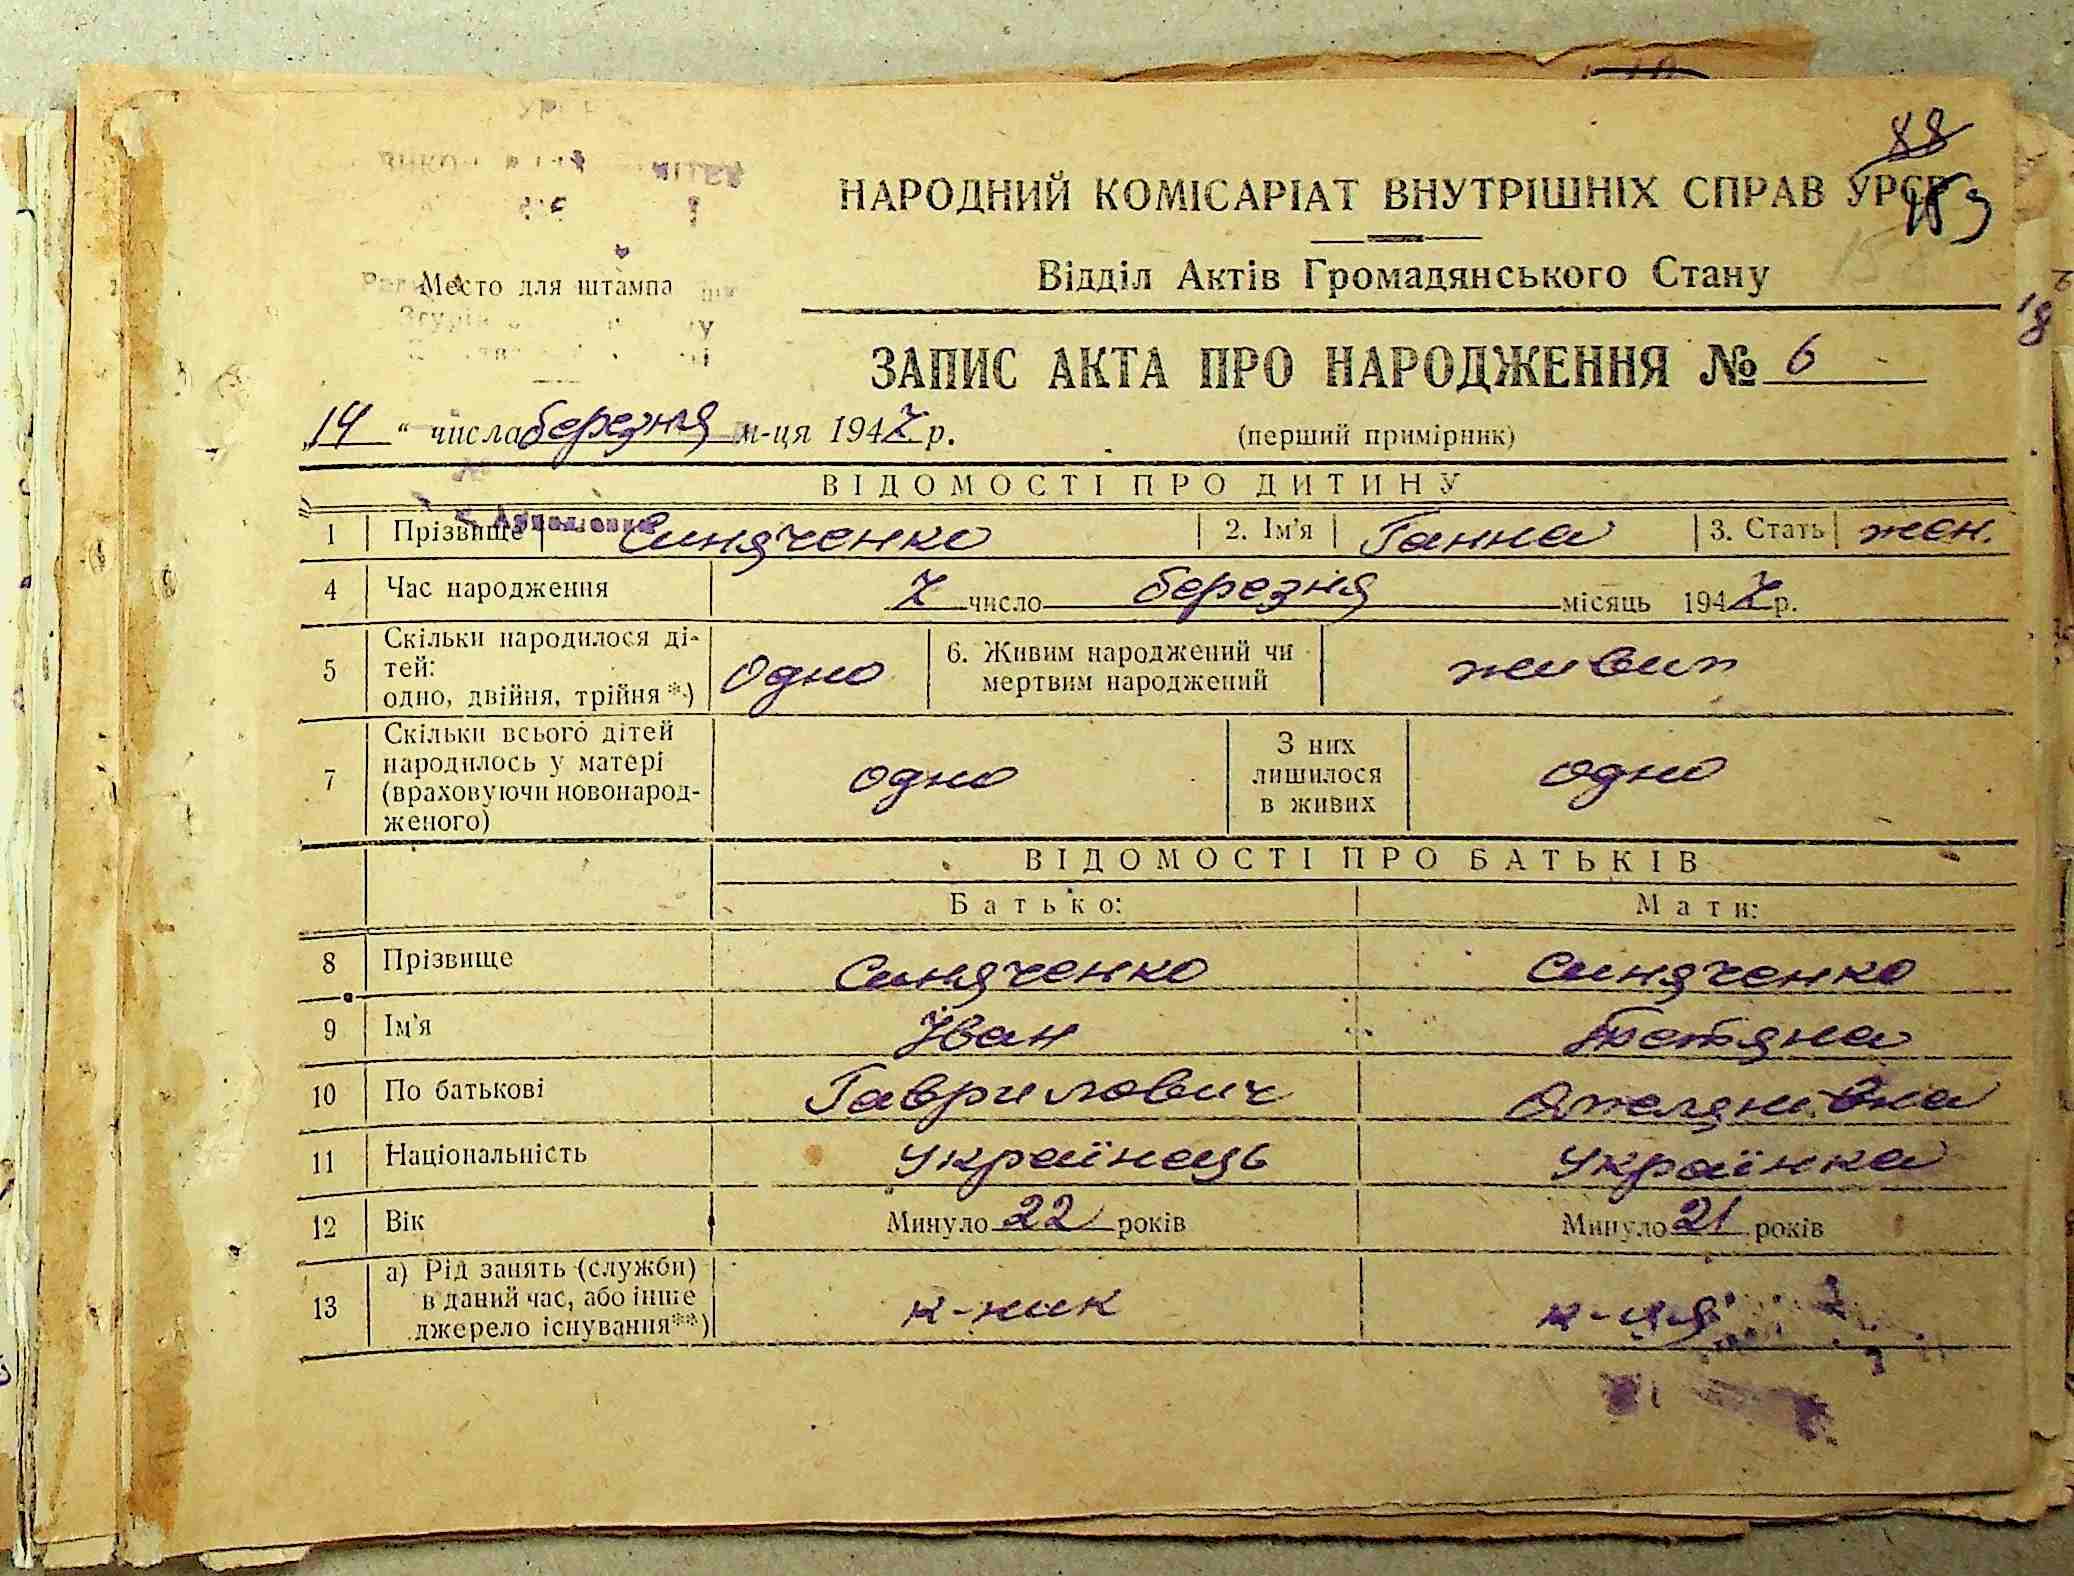 88
НАРОДНИЙ КОМІСАРІАТ ВНУТРІШНІХ СПРАВ УРСР
153
Відділ Актів Громадянського Стану
Место для штампа
18
ЗАПИС АКТА ПРО НАРОДЖЕННЯ № 6
„14“ числа березня м-ця 1947 р. (перший примірник)
ВІДОМОСТІ ПРО ДИТИНУ
1 Прізвище Синяченко 2. Ім'я Ганна 3. Стать жен.
4 Час народження 7 число березня місяць 1947 р.
5 Скільки народилося ді-
тей:
одно, двійня, трійня*) одно 6. Живим народжений чи
мертвим народжений живим
7 Скільки всього дітей
народилось у матері
(враховуючи новонарод-
женого) одно З них
лишилося
в живих одно
ВІДОМОСТІ ПРО БАТЬКІВ
Батько: Мати:
8 Прізвище Синяченко Синяченко
9 Ім'я Іван Тетяна
10 По батькові Гаврилович Омелянівна
11 Національність Українець Українка
12 Вік Минуло 22 років Минуло 21 років
13 а) Рід занять (служби)
в даний час, або інше
джерело існування**) к-ник к-ця